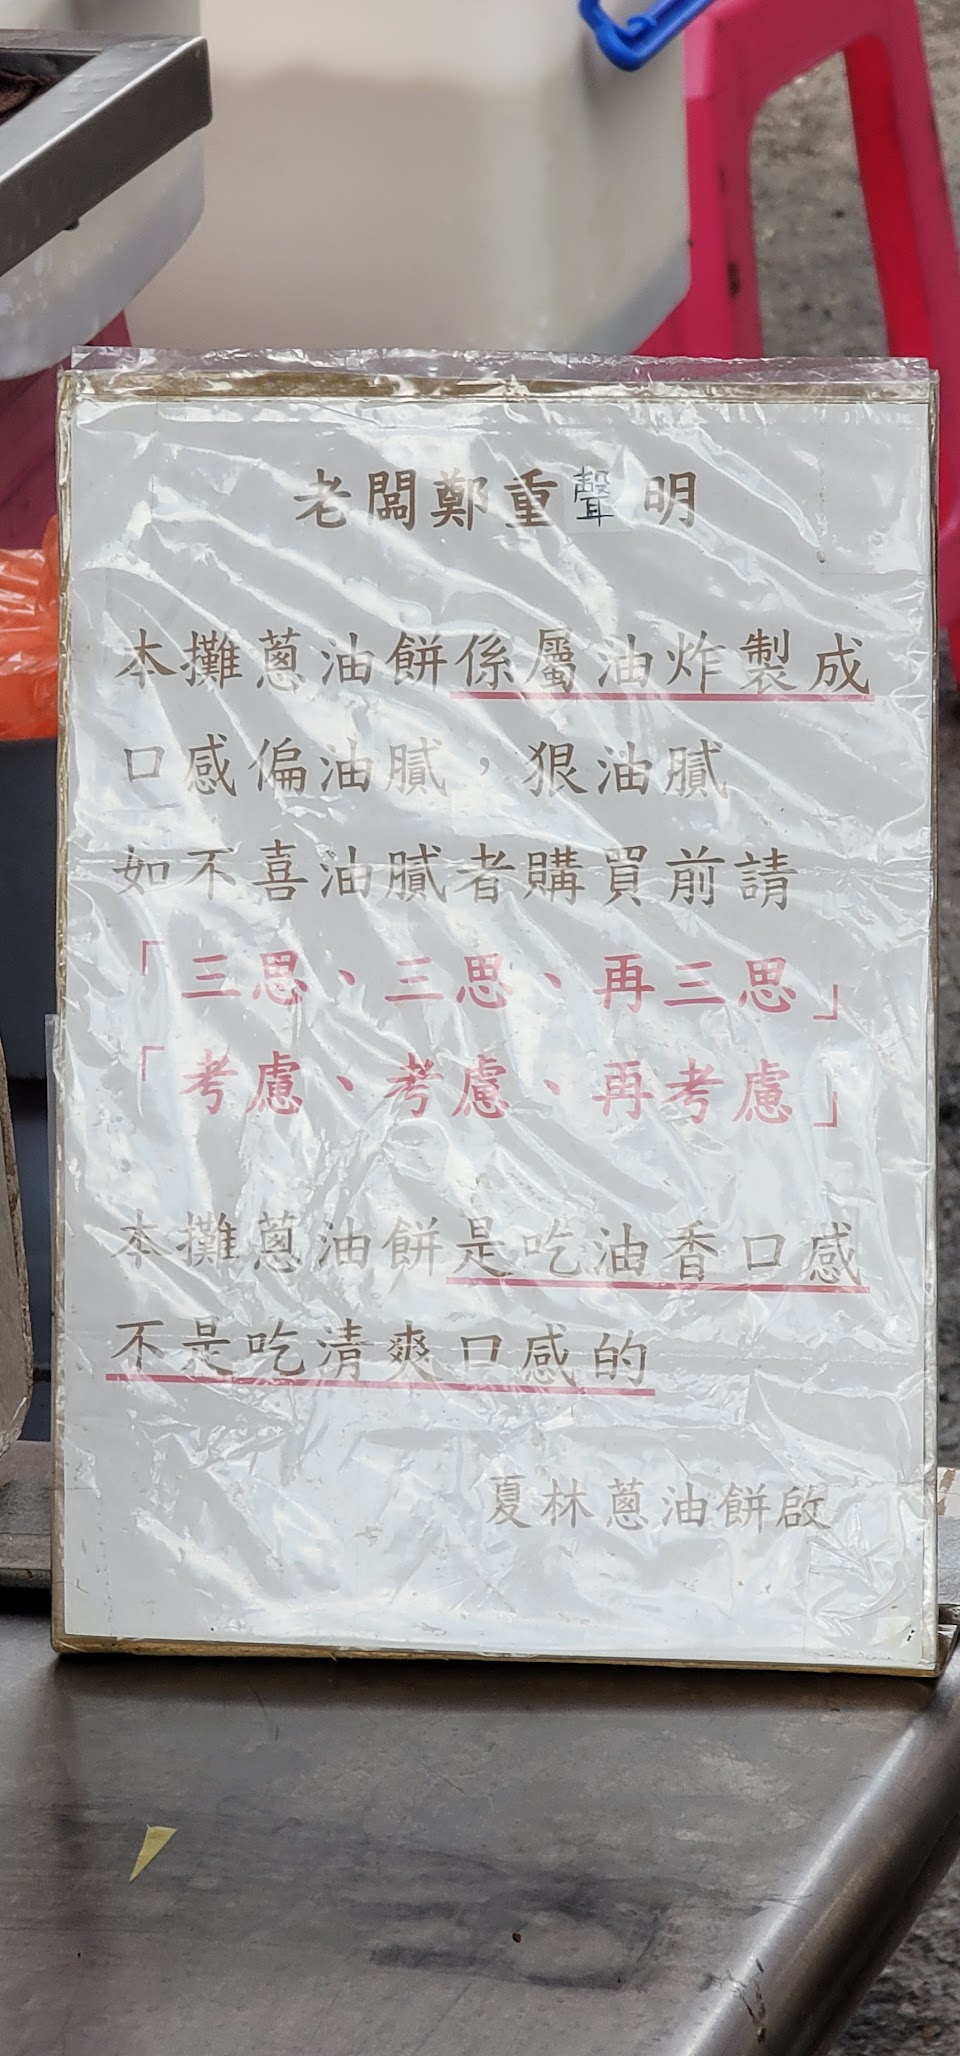 老闆鄭重聲明
本攤蔥油餅係屬油炸製成
口感偏油膩，狠油膩
如不喜油膩者購買前請
「三思、三思、再三思」
「考慮、考慮、再考慮」
本攤蔥油餅是吃油香口感
不是吃清爽口感的
夏林蔥油餅啟